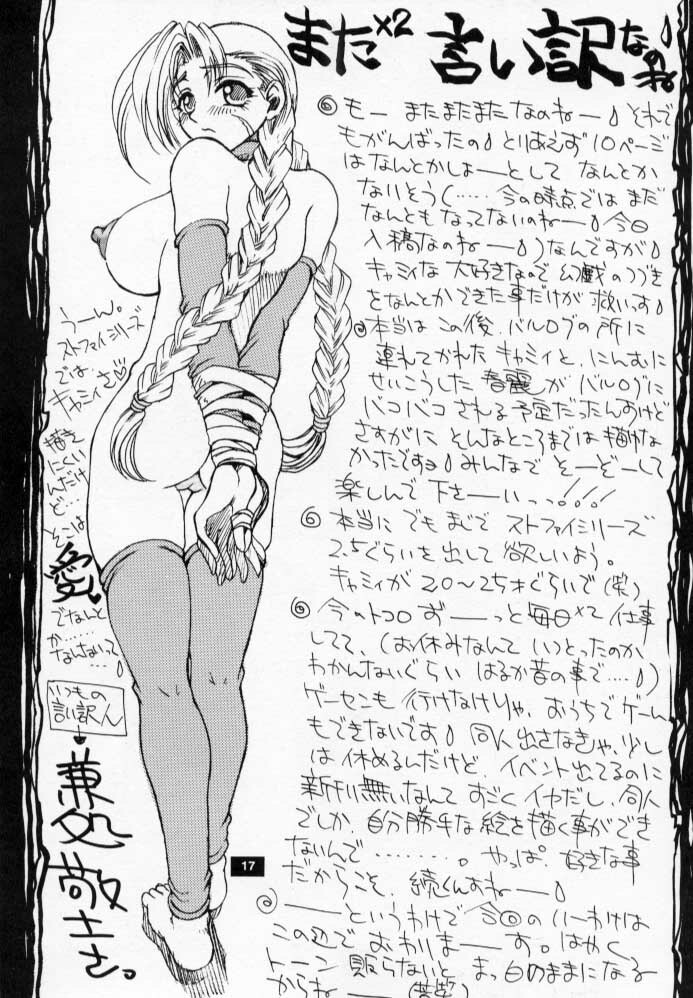 また×2 言い訳なのね
◎もー またまたまたなのねー それで
もがんばったの とりあえず10ページ
はなんとかしよーとして なんとか
ないそう(……今の時点では まだ
なんともなってないのねー 今日
入稿なのねー)なんですが
キャミィな 大好きなので 幻戯のつづき
をなんとかできた事だけが 救いす
◎本当は この後、バルログの所に
連れてかれたキャミィと、にんむに
せいこうした 春麗が バルログに
バコバコ される予定だったんすけど
さすがに そんなところまでは描けな
かったですョ みんなで そーぞーして
楽しんで 下さーいっっ!!!
◎本当に でも まじで ストファイシリーズ
2.5ぐらいを出して 欲しいよう。
キャミィが 20〜25才ぐらいで(笑)
◎今のトコロ ずーっと毎日×2 仕事
してて、(お休みなんて いつとったのか
わかんないぐらい はるか昔の事で…)
ゲーセンも 行けなけりゃ、おうちでゲーム
もできないです 同人出さなきゃ、少し
は休めるんだけど、イベント出てるのに
新刊無いなんて すごく イヤだし、同人
でしか、自分勝手な絵を描く事ができ
ないんで………。やっぱ、好きな事
だからこそ、続くんすねー
◎——というわけで 今回の いーわけは
この辺で おわりまーす。はやく
トーン 貼らないと まっ白のままになる
からねー(苦笑)
うーん。
ストファイシリーズ
では、
キャミィさ♡
描き
にくい
んだけ
ど…
そこは
愛
でなんと
か……
なんないって…
いつもの
言い訳人
兼処敬士さ。
17